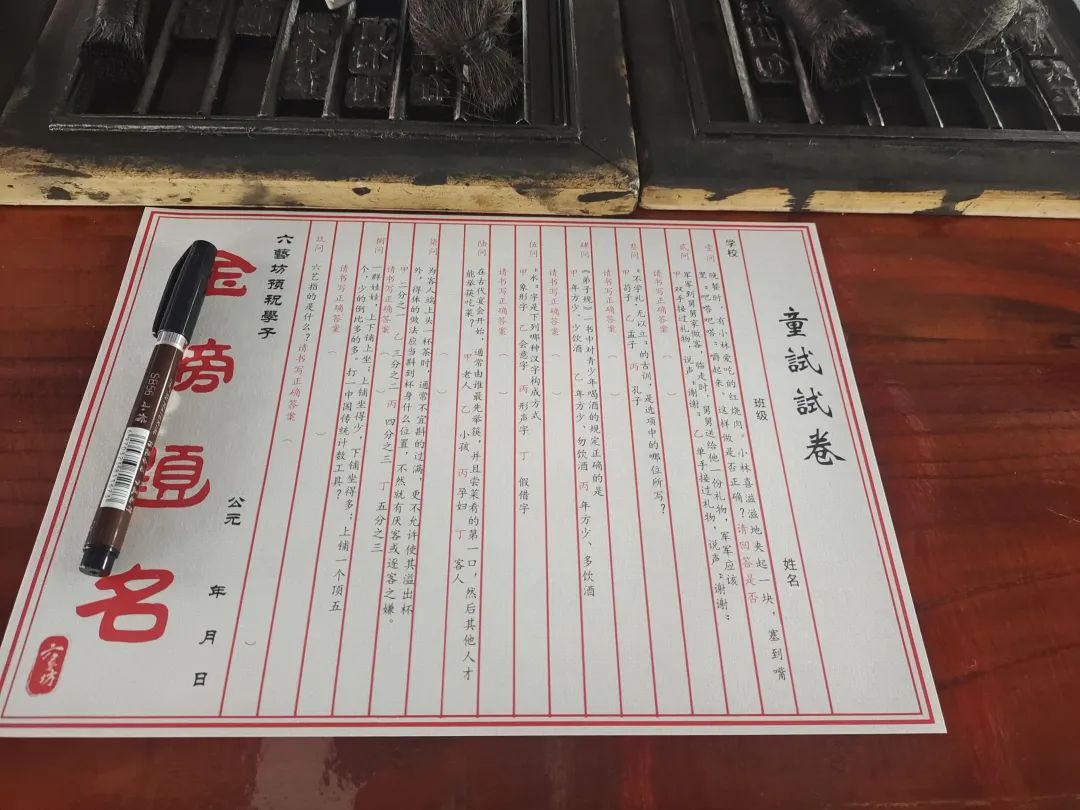 童試試卷
学校 班级 姓名
壹问 晚餐时,有小林爱吃的红烧肉。小林喜滋滋地夹起一块,塞到嘴
里:吧嗒吧嗒:嚼起来,这样做是否正确?请回答是否
贰问 军军到舅舅家做客,临走时,舅舅送给他一份礼物,军军应该
甲 双手接过礼物,说声:谢谢: 乙 单手接过礼物,说声:谢谢:
请书写正确答案(
叁问 “不学礼,无以立”的古训,是选项中的哪位所写?
甲 荀子 乙 孟子 丙 孔子
请书写正确答案(
肆问 《弟子规》一书中对青少年喝酒的规定正确的是
甲 年方少、少饮酒 乙 年方少、勿饮酒 丙 年方少、多饮酒
请书写正确答案(
伍问 “木”字是下列哪种汉字构成方式
甲 象形字 乙 会意字 丙 形声字 丁 假借字
请书写正确答案(
陆问 在古代宴会开始,通常由谁最先举筷,并且尝菜肴的第一口,然后其他人才
能举筷吃菜? 甲 老人 乙 小孩 丙 孕妇 丁 客人
请书写正确答案(
柒问 为客人端上头一杯茶时,通常不宜斟的过满,更不允许使其溢出杯
外,得体的做法应当斟到杯身什么位置,不然就有厌客或逐客之嫌。
甲 二分之一 乙 三分之二 丙 四分之三 丁 五分之三
请书写正确答案(
捌问 一群娃娃,上下铺上坐;上铺坐得少,下铺坐得多;上铺一个顶五
个,少的倒比多的多。打一中国传统计数工具?
请书写正确答案(
玖问 六艺指的是什么?请书写正确答案( )
六藝坊预祝學子
金榜題名
公元 年 月 日
六艺坊
SB56